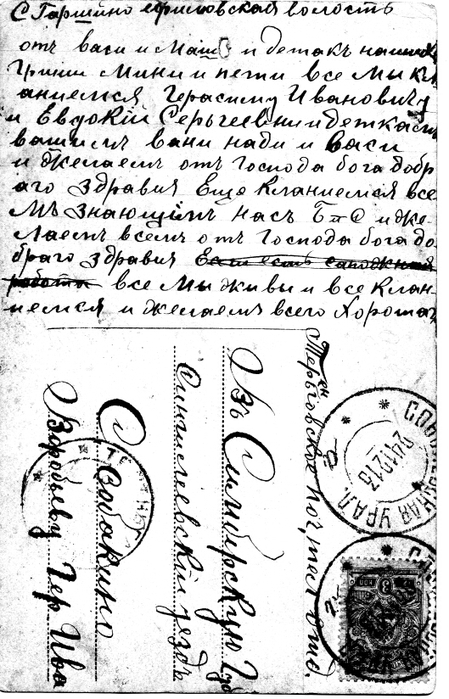 С Гаршино ефимовская волость
отъ васи и Маши и детакъ нашихъ
Гриши Мини и пети все мы кл
анiемся Герасиму Ивановичу
и Евдокiй Серьгеевни и деткамъ
вашимъ вани нади и Васи
и желаемъ отъ Господа бога добр
аго здравия Еще кланиемся все
мъ знающiмъ насъ и же
лаемъ всемъ отъ Господа бога до
браго здравия Если есть сапожная
работа все мы живы и все клан
иемся и желаемъ всего Хорошаго
Въ Симбирскую Губ
Сингилевский уездъ
С Собакино
Варобьеву Гер Ива
24.12.13
УРАЛ.